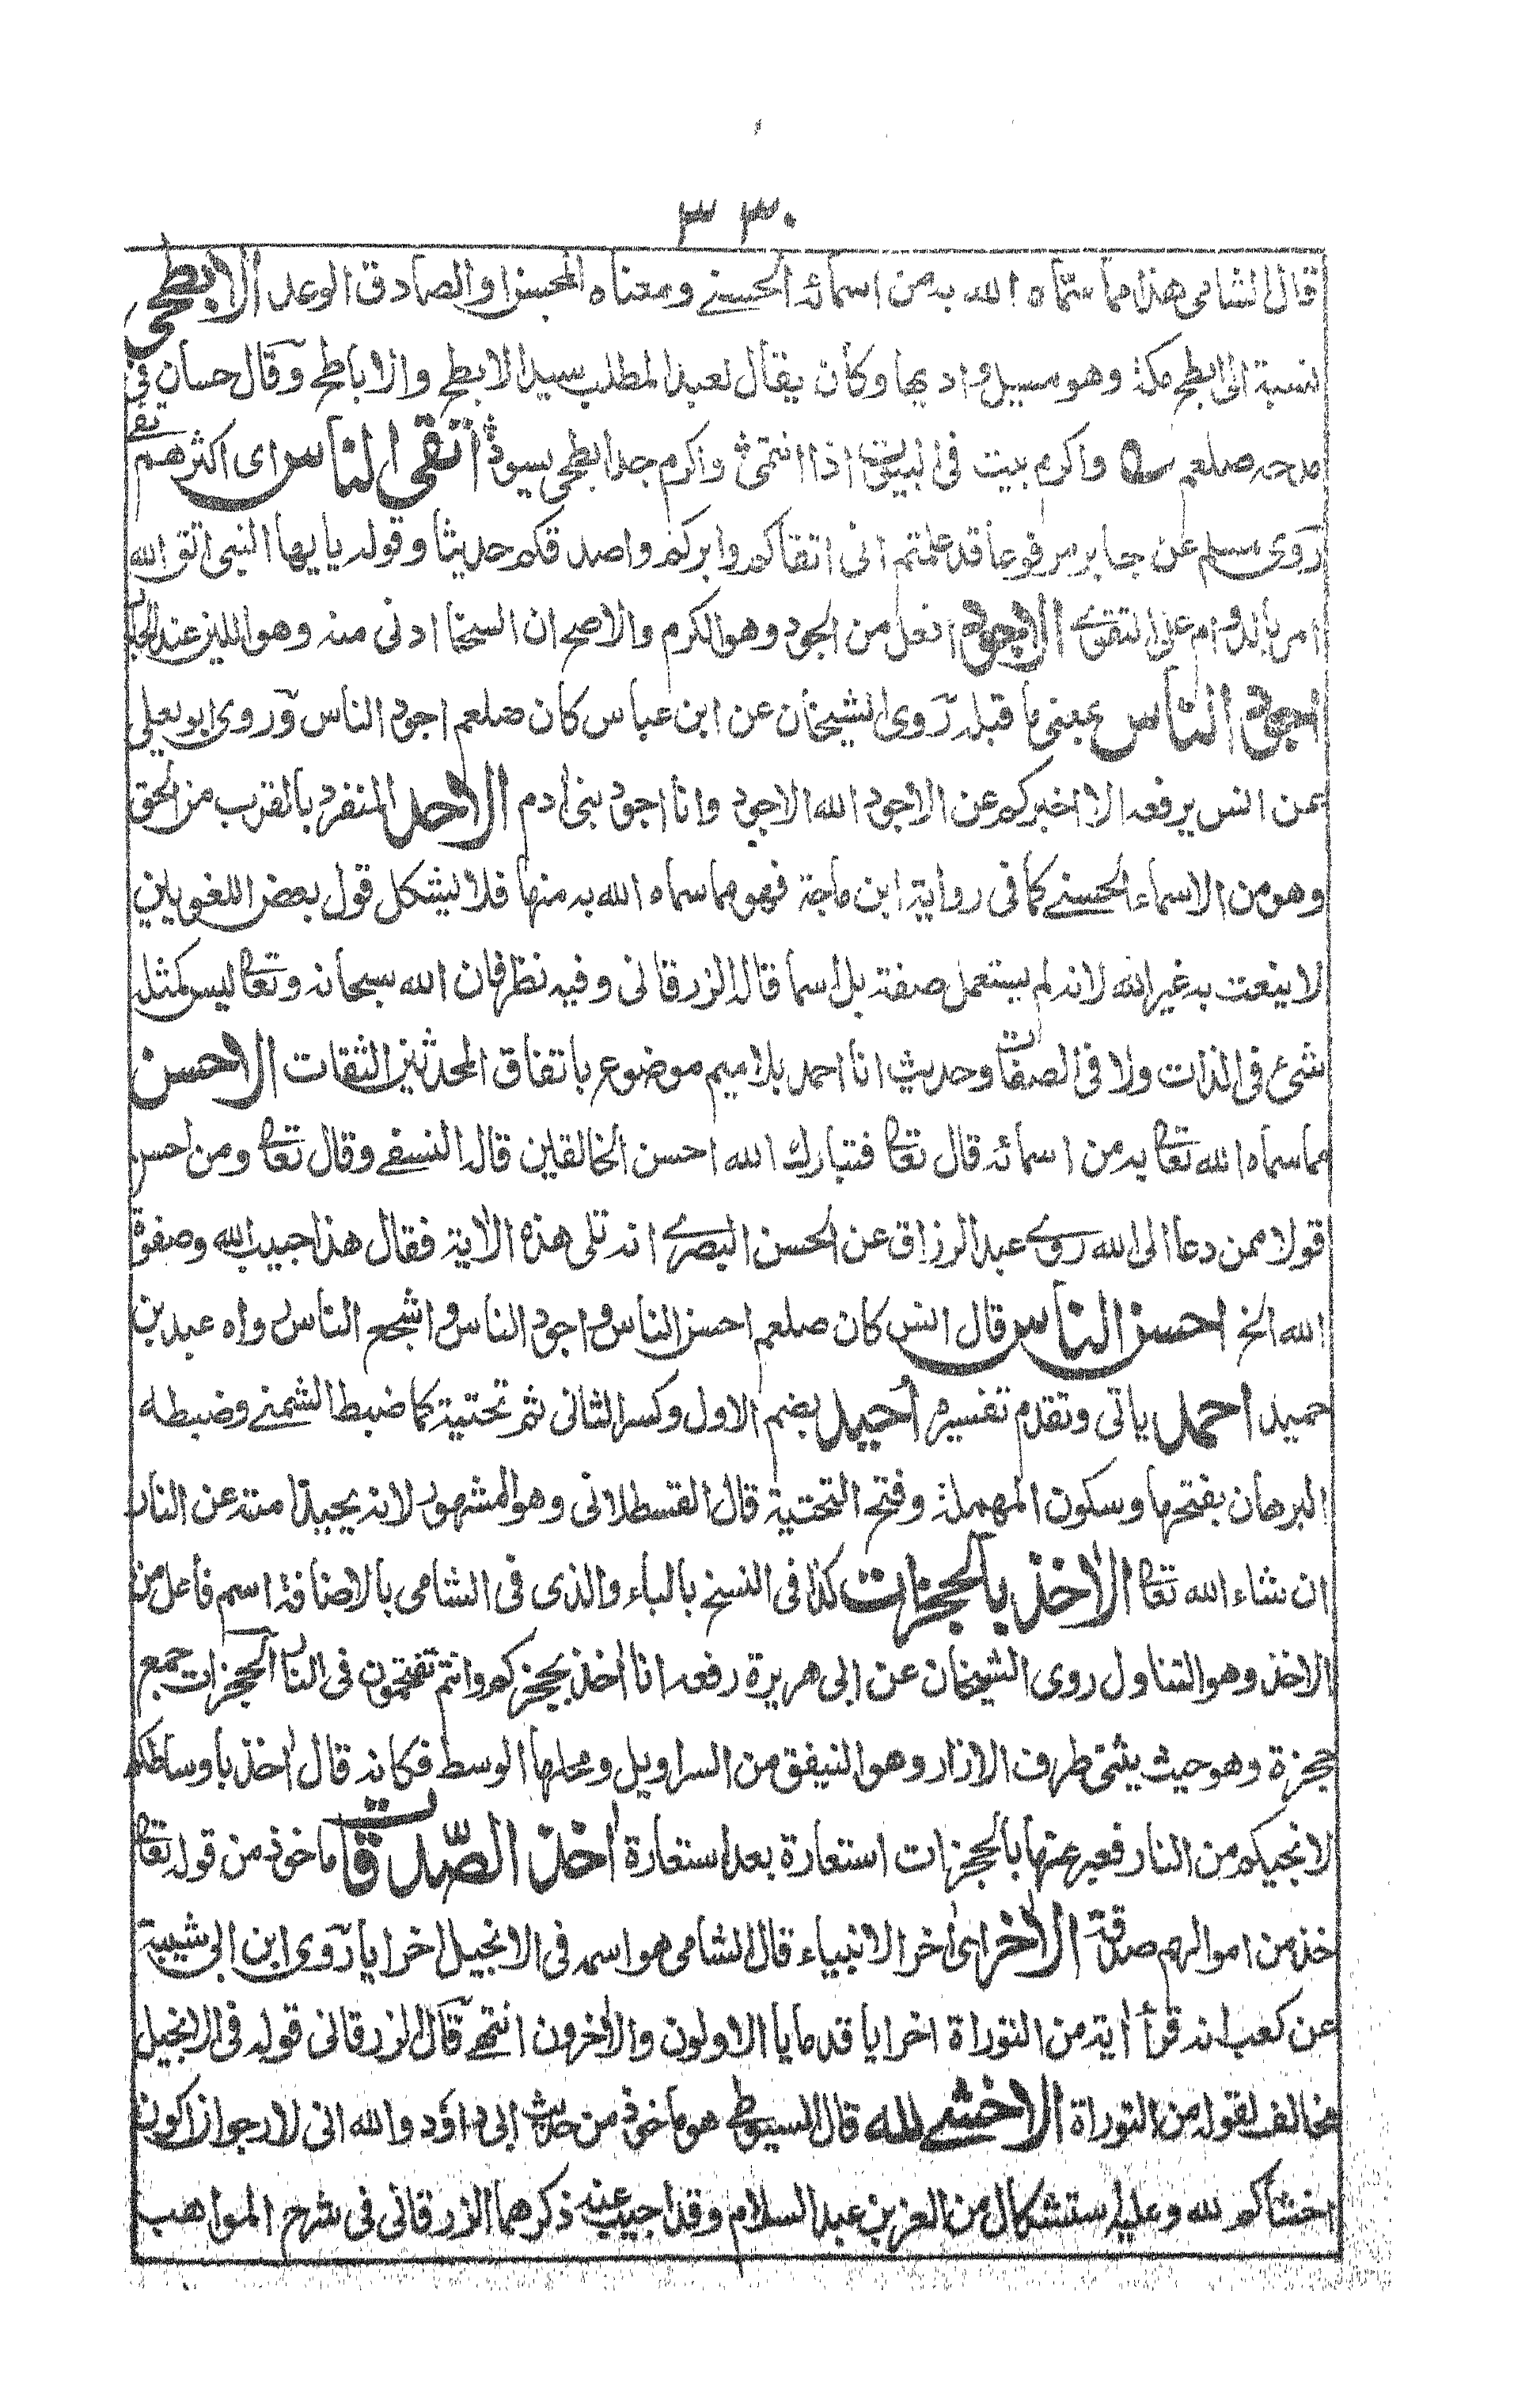 ٣٣٠
قال الشامى هذا مما سماه الله به من اسمائه الحسنے ومعناه المحسن او الصادق الوعد الابطحى
نسبة الى ابطح مكة وهو مسيل واديها وكان يقال لعبد المطلب سيد الابطح والاباطح وقال حسان فى
مدحه صلعم ے واكرم بيت فى البيوت اذا انتمى واكرم جدا ابطحى يسود اتقى الناس اى اكثرهم تقے
روى مسلم عن جابر مرفوعا قد علمتم انى اتقاكم وابركم واصدقكم حديثا وقوله يايها النبى اتق الله
امر بالدوام على التقوے الاجود افعل من الجود وهو الكرم والاصح ان السخا ادنى منه وهو اللين عند
اجود الناس بمعنى ما قبله روى الشيخان عن ابن عباس كان صلعم اجود الناس وروى ابو يعلى
عن انس يرفعه الا اخبركم عن الاجود الله الاجود وانا اجود بنى ادم الاحد المنفرد بالقرب من الحق
وهو من الاسماء الحسنے كما فى رواية ابن ماجة فهو مما سماه الله به منها فلا يشكل قول بعض اللغويين
لا ينعت به غير الله لانه لم يستعمل صفة بل اسما قاله الزرقانى وفيه نظر فان الله سبحانه وتعا ليس كمثله
شئ فى الذات ولا فى الصفات وحديث انا احمد بلا ميم موضوع باتفاق المحدثين الثقات الاحسن
مما سماه الله تعا به من اسمائه قال تعا فتبارك الله احسن الخالقين قاله النسفے وقال تعا ومن احسن
قولا ممن دعا الى الله روے عبد الرزاق عن الحسن البصرے انه تلى هذه الاية فقال هذا حبيب الله وصفوة
الله الخ احسن الناس قال انس كان صلعم احسن الناس واجود الناس واشجع الناس رواه عبد بن
حميد احمد ياتى وتقدم تفسيره أحيد بضم الاول وكسر الثانى ثم تحتية كما ضبطا الشمنے وضبطه
البرهان بفتحها وسكون المهملة وفتح التحتية قال القسطلانى وهو المشهور لانه يحيد امته عن النار
ان شاء الله تعا الاخذ بالحجزات كذا فى النسخ بالباء والذى فى الشامى بالاضافة اسم فاعل من
الاخذ وهو التناول روى الشيخان عن ابى هريرة رفعه انا اخذ بحجزكم وانتم تقتحمون فى النار الحجزات جمع
حجزة وهو حيث يثنى طرف الازار وهو النيفق من السراويل ومحلها الوسط فكانه قال اخذ باوساطكم
لانجيكم من النار فعبر عنها بالحجزات استعارة بعد استعارة اخذ الصدقات ماخوذ من قوله تعا
خذ من اموالهم صدقة الاخر اى اخر الانبياء قال الشامى هو اسمه فى الانجيل اخرايا روى ابن ابى شيبة
عن كعب انه قرأ اية من التوراة اخرايا قدمايا الاولون والاخرون انتهے قال الزرقانى قوله فى الانجيل
مخالف لقوله من التوراة الاخشے لله قال السيوطے هو ماخوذ من حديث ابى داود والله انى لارجو ان اكون
اخشاكم لله وعليه استشكال من العز بن عبد السلام وقد اجيب عنه ذكرهما الزرقانى فى شرح المواهب